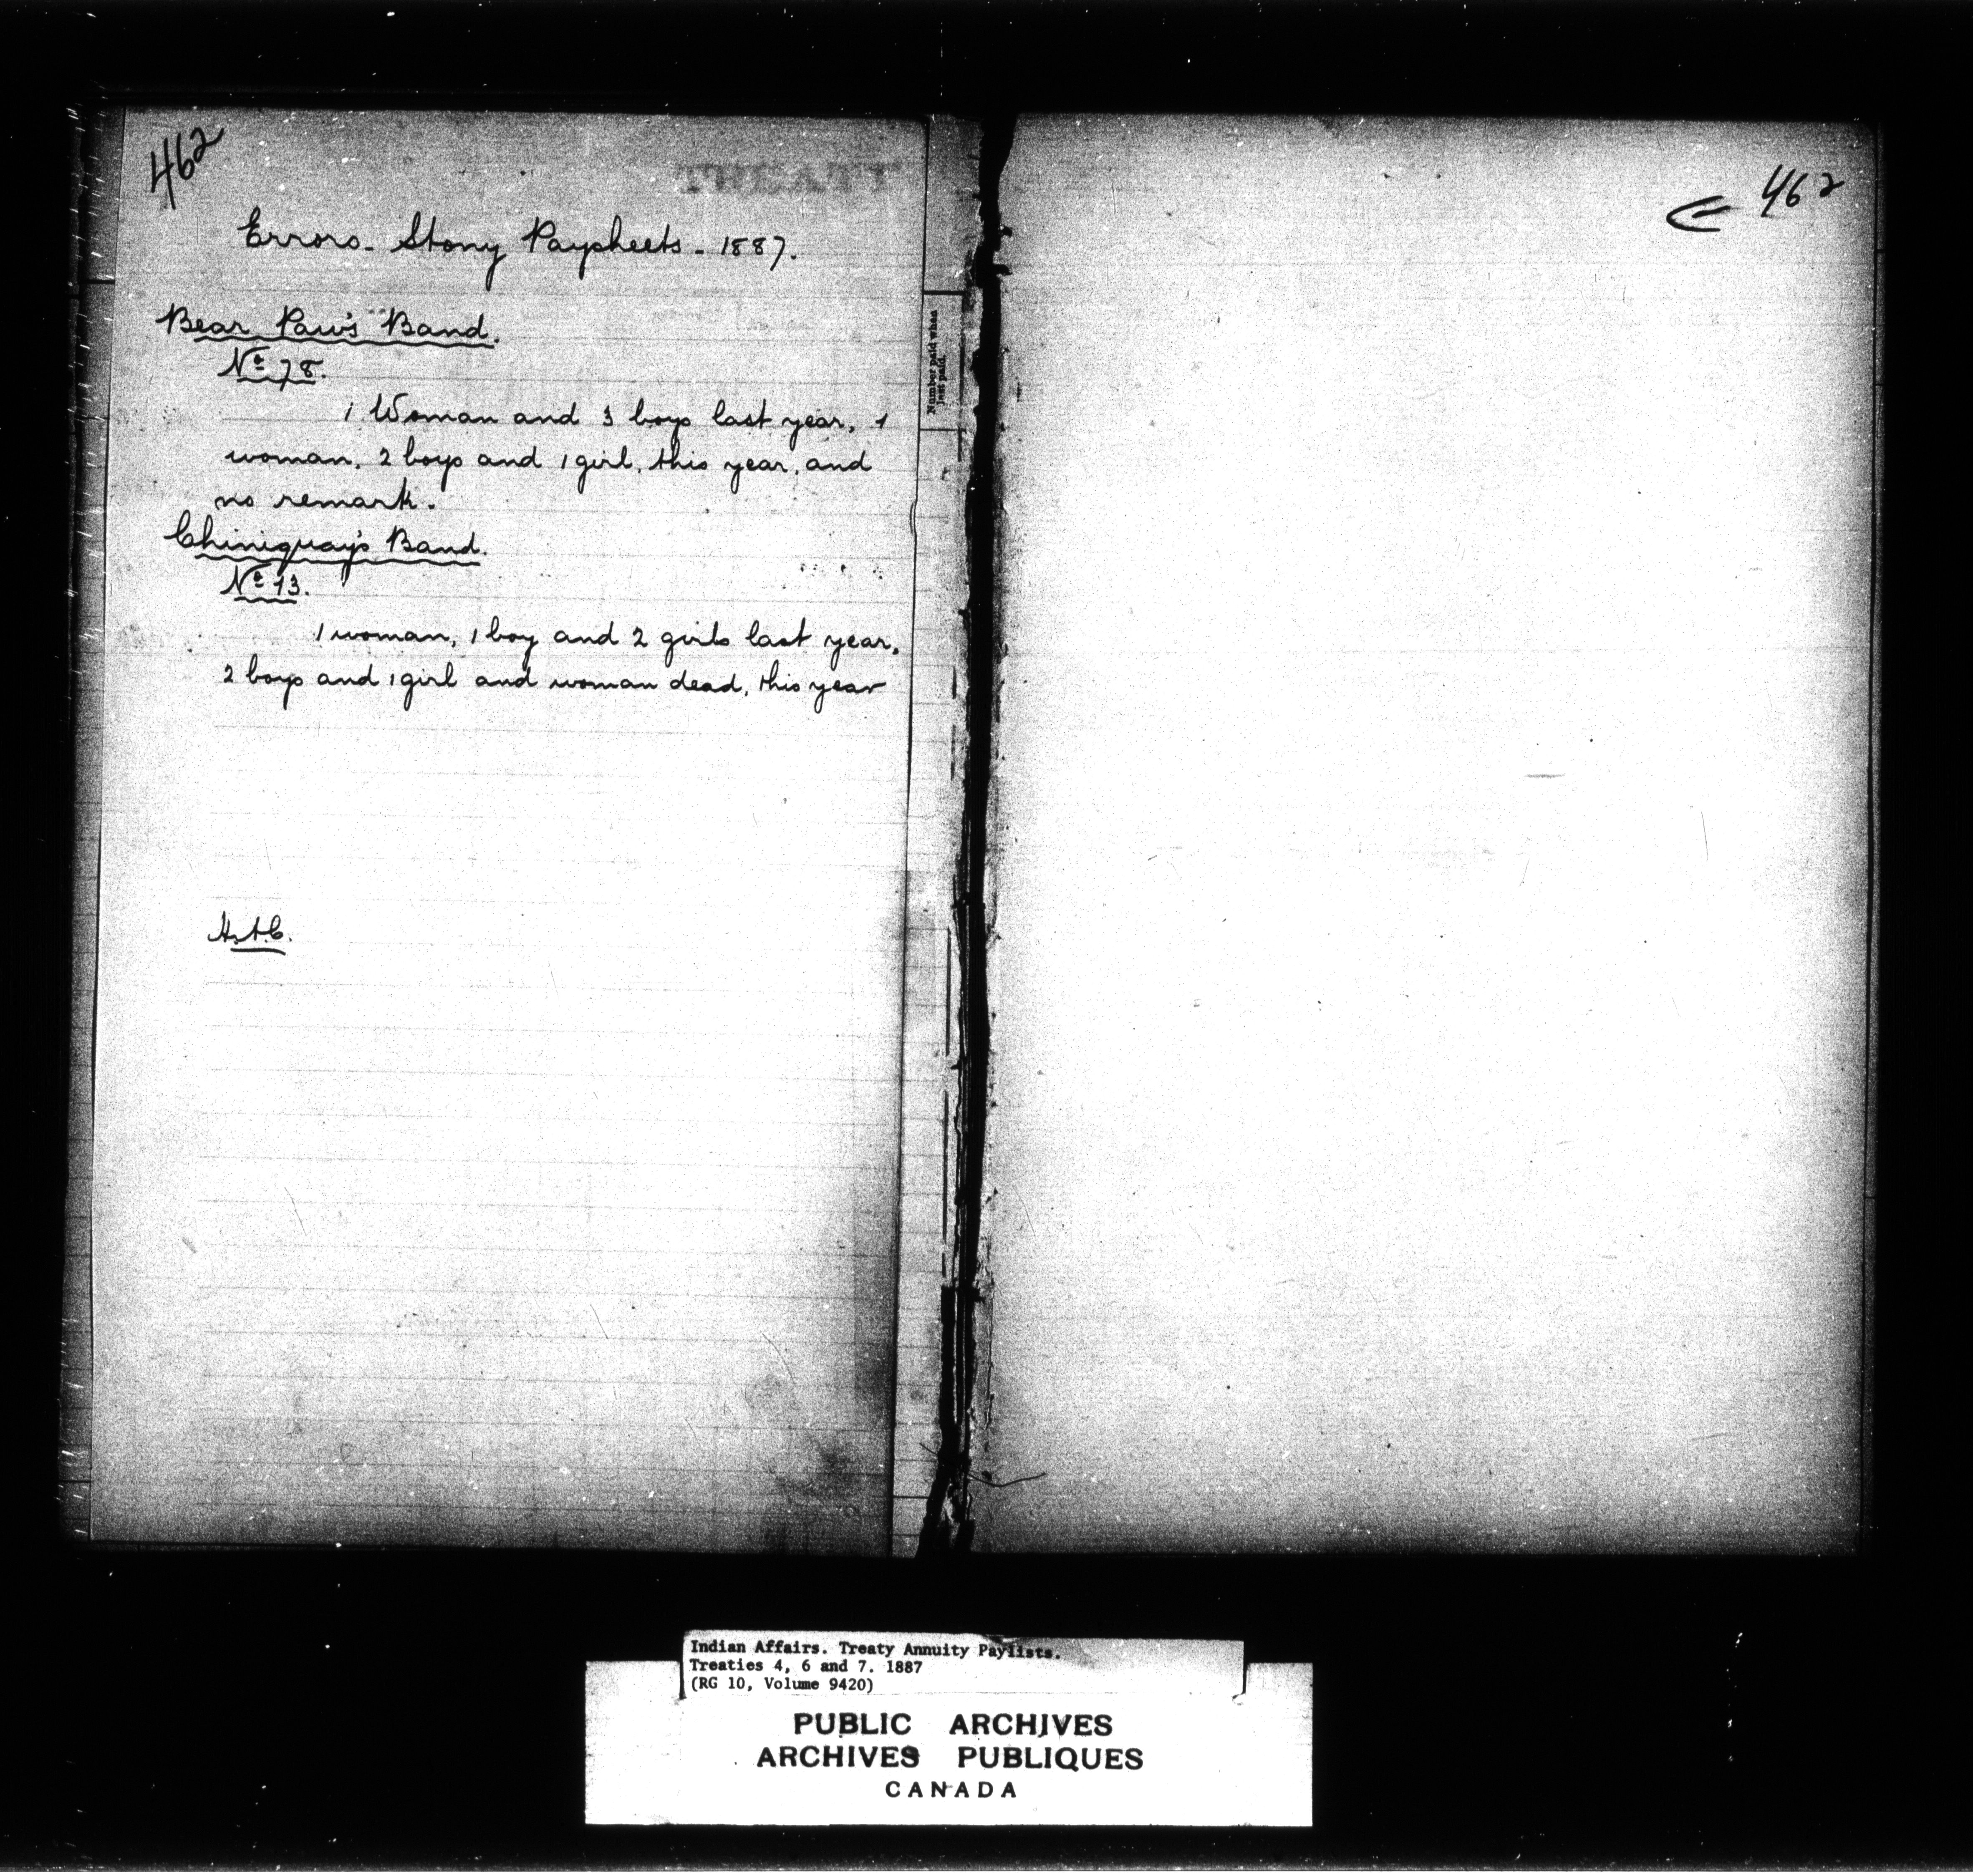 462
Errors - Stony Paysheets - 1887.
Bear Paw's Band.
No 78.
1 Woman and 3 boys last year, 1
woman, 2 boys and 1 girl, this year, and
no remark.
Chiniquay's Band.
No 13.
1 woman, 1 boy and 2 girls last year,
2 boys and 1 girl and woman dead, this year
Number paid when
last paid.
462
Indian Affairs. Treaty Annuity Paylists.
Treaties 4, 6 and 7. 1887
(RG 10, Volume 9420)
PUBLIC ARCHIVES
ARCHIVES PUBLIQUES
CANADA